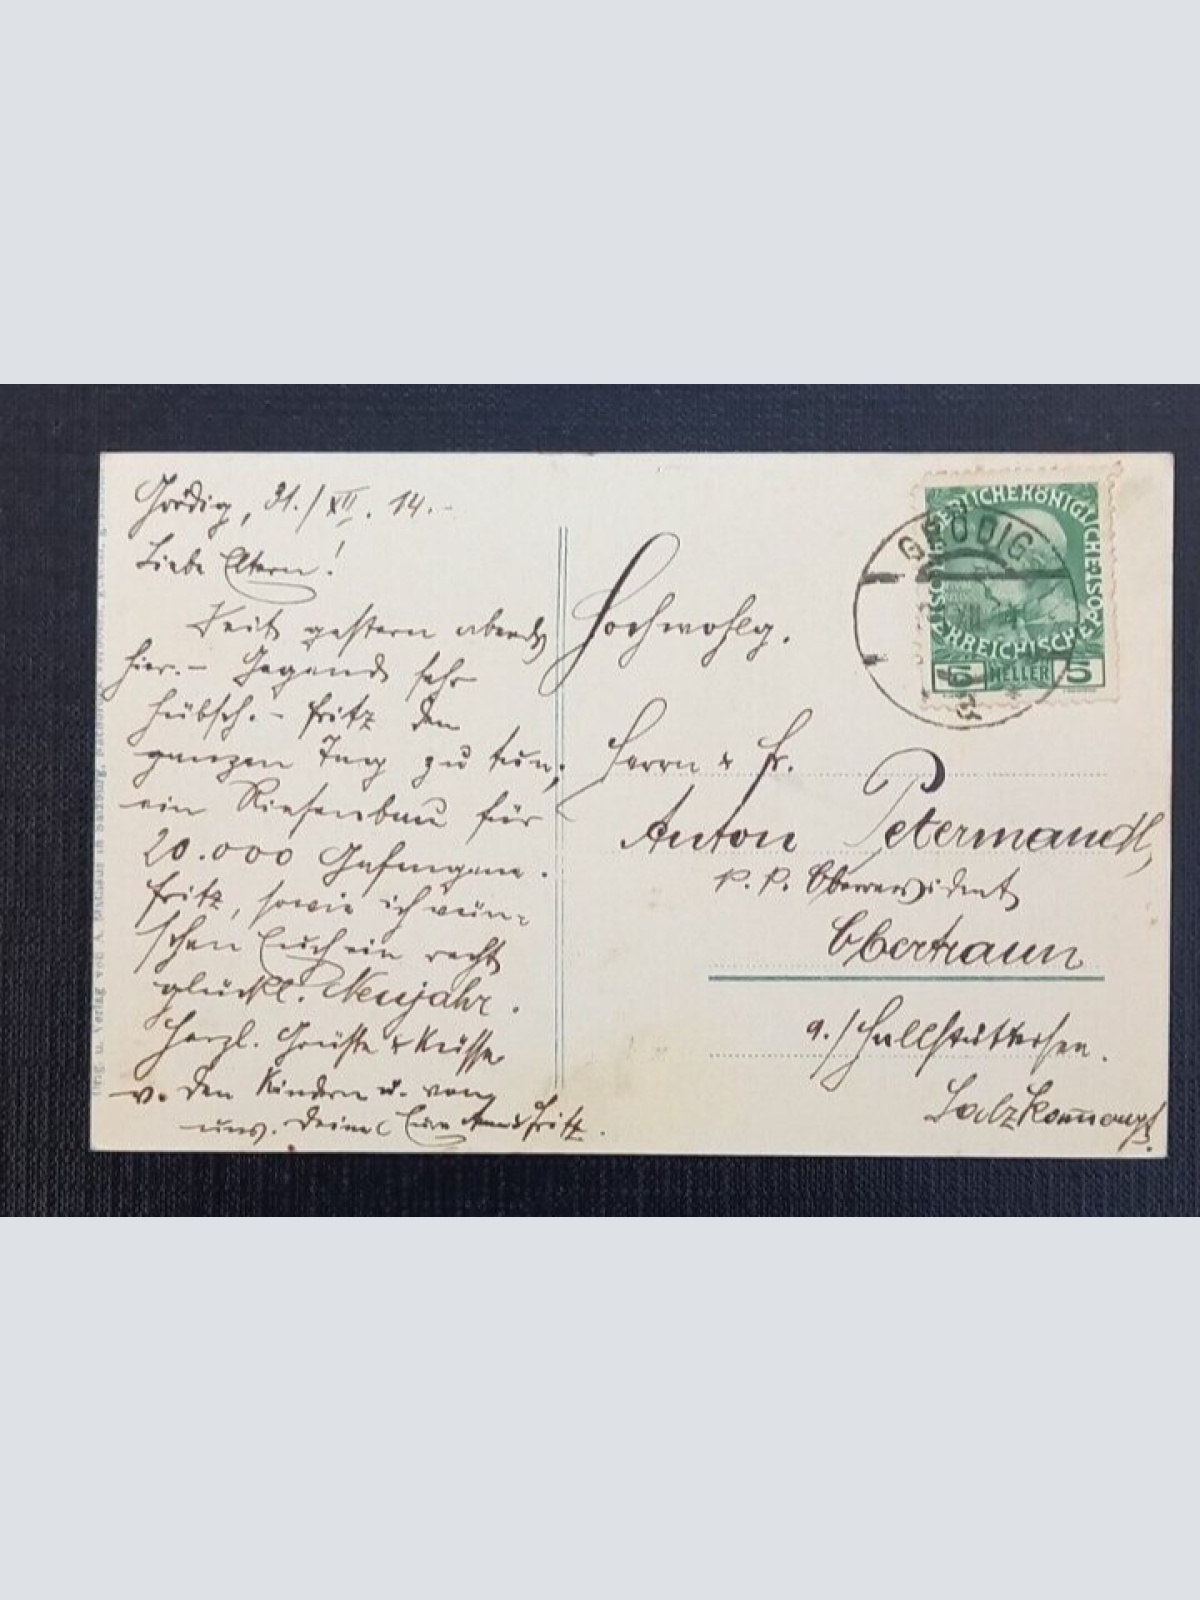 Grödig, 31./XII. 14.-
Liebe Eltern!
Seit gestern abends
hier. - Gegend sehr
hübsch. - Fritz den
ganzen Tag zu tun;
ein Riesenbau für
20.000 Gefangene.
Fritz, sowie ich wün-
schen Euch ein recht
glückl. Neujahr.
Herzl. Grüße & Küsse
v. den Kindern u. von
uns. Eure
Hochwohlg.
Herrn & Fr.
Anton Petermandl,
k. k. Oberrevident
Obertraun
a./Hallstättersee.
Salzkammergut.
GRÖDIG
XII 14
KAISERLICHE KÖNIGLICHE ÖSTERREICHISCHE POST
5 HELLER 5